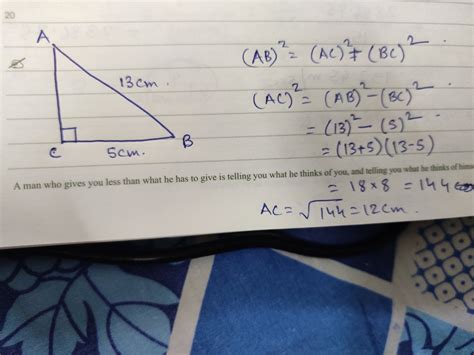 20
A
13cm.
C
5cm.
B
(AB)² = (AC)² + (BC)²
(AC)² = (AB)² - (BC)²
= (13)² - (5)²
= (13+5)(13-5)
A man who gives you less than what he has to give is telling you what he thinks of you, and telling you what he thinks of
= 18 × 8 = 144
AC = √144 = 12cm.